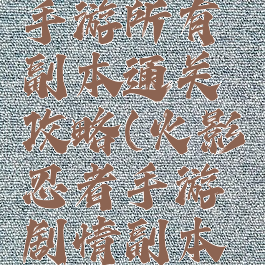 手游所有
副本通关
攻略(火影
忍者手游
剧情副本